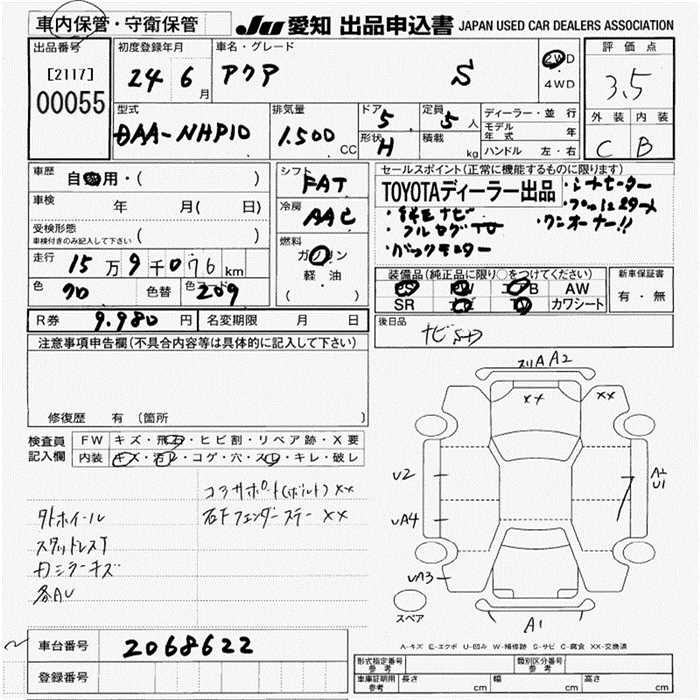 車内保管・守衛保管
JU 愛知 出品申込書 JAPAN USED CAR DEALERS ASSOCIATION
出品番号
[2117]
00055
初度登録年月
24 6 月
車名・グレード
アクア S
2WD
・
4WD
評価点
3.5
外装 内装
C B
型式
DAA-NHP10
排気量
1.500 CC
ドア 5
形状 H
定員 5 人
積載 kg
ディーラー・並行
モデル年式 年
ハンドル 左・右
車歴
自家用・( )
車検 年 月( 日)
受検形態
車検付きのみ記入して下さい ( )
走行 15万9千076km
色 70 色替 色コード 209
シフト
FAT
冷房
AAC
燃料
ガソリン
軽・油
( )
セールスポイント(正常に機能するものに限ります)
TOYOTAディーラー出品
・純正ナビ
・フルセグTV
・バックモニター
・シートヒーター
・ワンオーナー!!
装備品(純正品に限り○をつけてください)
PS PW エアB AW
SR ナビ TV カワシート
新車保証書
有・無
R券 9.980 円 名変期限 月 日
後日品
ナビSD
注意事項申告欄(不具合内容等は具体的に記入して下さい)
修復歴 有(箇所
検査員記入欄
FW キズ・飛石・ヒビ割・リペア跡・X要
内装 キズ・汚レ・コゲ・穴・スレ・キレ・破レ
コアサポート(ボルト)XX
右Fフェンダーステー XX
外ホイール
スタッドレスT
各AU
A A2
XX
XX
U2
UA4
UA3
A2
U1
A1
スペア
A-キズ E-エクボ U-凹み W-補修跡 S-サビ C-腐食 XX-交換済
車台番号 2068622
登録番号
形式指定番号 参考
類別区分番号 参考
車庫証明用 参考 長さ cm 幅 cm 高さ cm